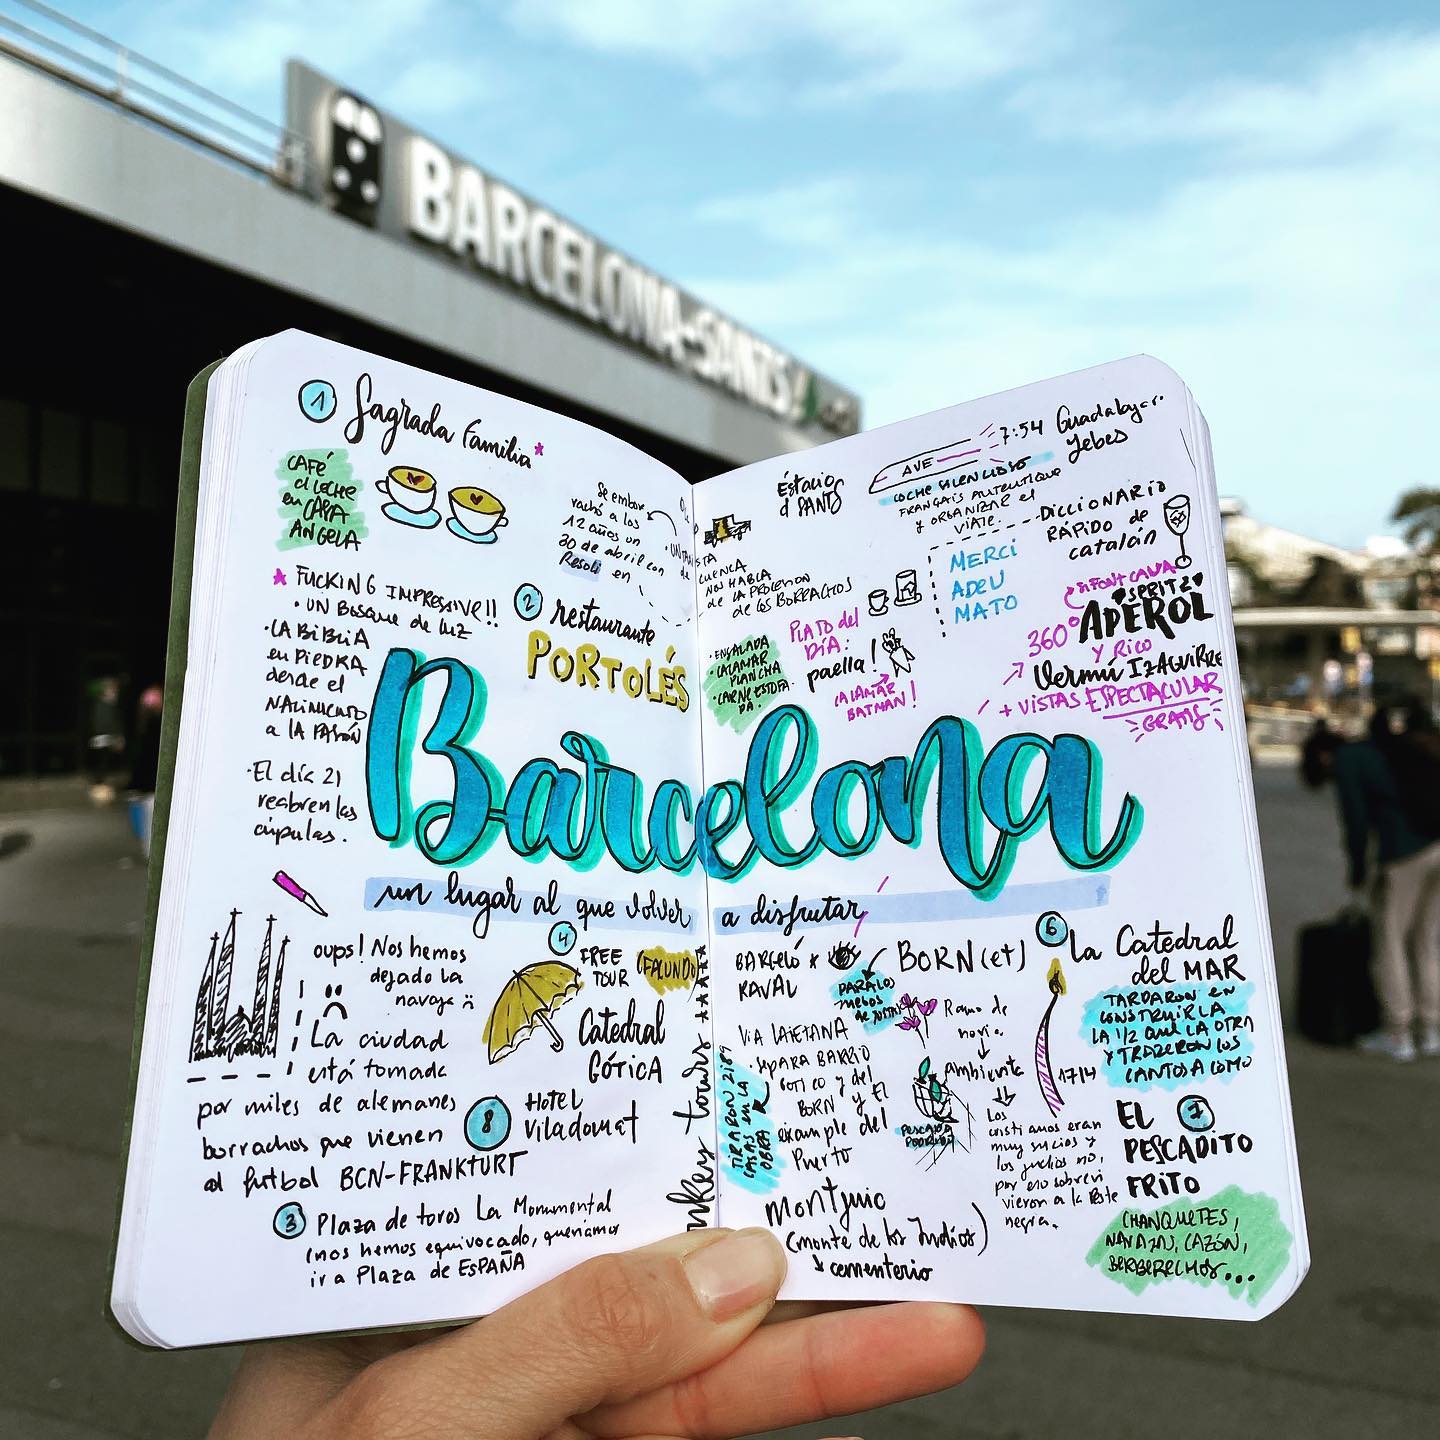 BARCELONA-SANTS
1 Sagrada Familia*
CAFÉ
c/ LECHE
en CASA
ANGELA
* FUCKING IMPRESSIVE!!
• UN BOSQUE de LUZ
• LA BIBLIA
en PIEDRA
desde el
NACIMIENTO
a la PASIÓN
• El día 21
reabren las
cúpulas.
Se embor
rachó a los
12 años un
30 de abril con
Resoli en
2 restaurante
PORTOLÉS
CUENCA
NOS HABLA
de LA PROCESION
de los BORRACHOS
• ENSALADA
• CALAMAR
PLANCHA
• CARNE ESTOFA
DA.
PLATO del
DÍA:
paella!
CALAMAR
BATMAN!
Estacio
d SANTS
AVE
7:54 Guadalajar
Yebes
COCHE SILENCIOSO
FRANÇAIS AUTENTIQUE
y ORGANIZAR el
VIAJE.
DICCIONARIO
RÁPIDO de
catalán
MERCI
ADEU
MATO
SPRITZ
APEROL
360°
Y RICO
Vermú IZAGUIRRE
+ VISTAS ESPECTACULAR
GRATIS
Barcelona
un lugar al que volver a disfrutar
oups! Nos hemos
dejado la
navaja
La ciudad
está tomada
por miles de alemanes
borrachos que vienen
al futbol BCN-FRANKFURT
4 FREE
TOUR
(FACUNDO)
Catedral
GÓTICA
8 HOTEL
Viladomat
3 Plaza de toros La Monumental
(nos hemos equivocado, queríamos
ir a Plaza de ESPAÑA
nkey tours ★★★★★
BARCELÓ
RAVAL
BORN(et)
PARA LOS
VIA LAIETANA
• SEPARA BARRIO
GOTICO y del
BORN y El
eixample del
Puerto
TIRARON 2189
CASAS en LA
OBRA
Montjuic
(monte de los Judíos)
cementerio
Ramo de
novia.
ambiente
PESCADO
PODRIDO
Los
cristianos eran
muy sucios y
los judíos no,
por eso sobrevi
vieron a la Peste
negra.
1714
6 La Catedral
del MAR
TARDARON en
CONSTRUIRLA
LA 1/2 que LA OTRA
Y TRAJERON LOS
CANTOS A LOMO
EL 7
PESCADITO
FRITO
CHANQUETES,
NAVAJAS, CAZÓN,
BERBERECHOS...